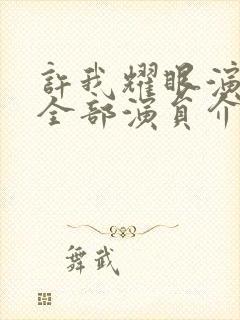 許我耀眼演
全部演員介
舞武